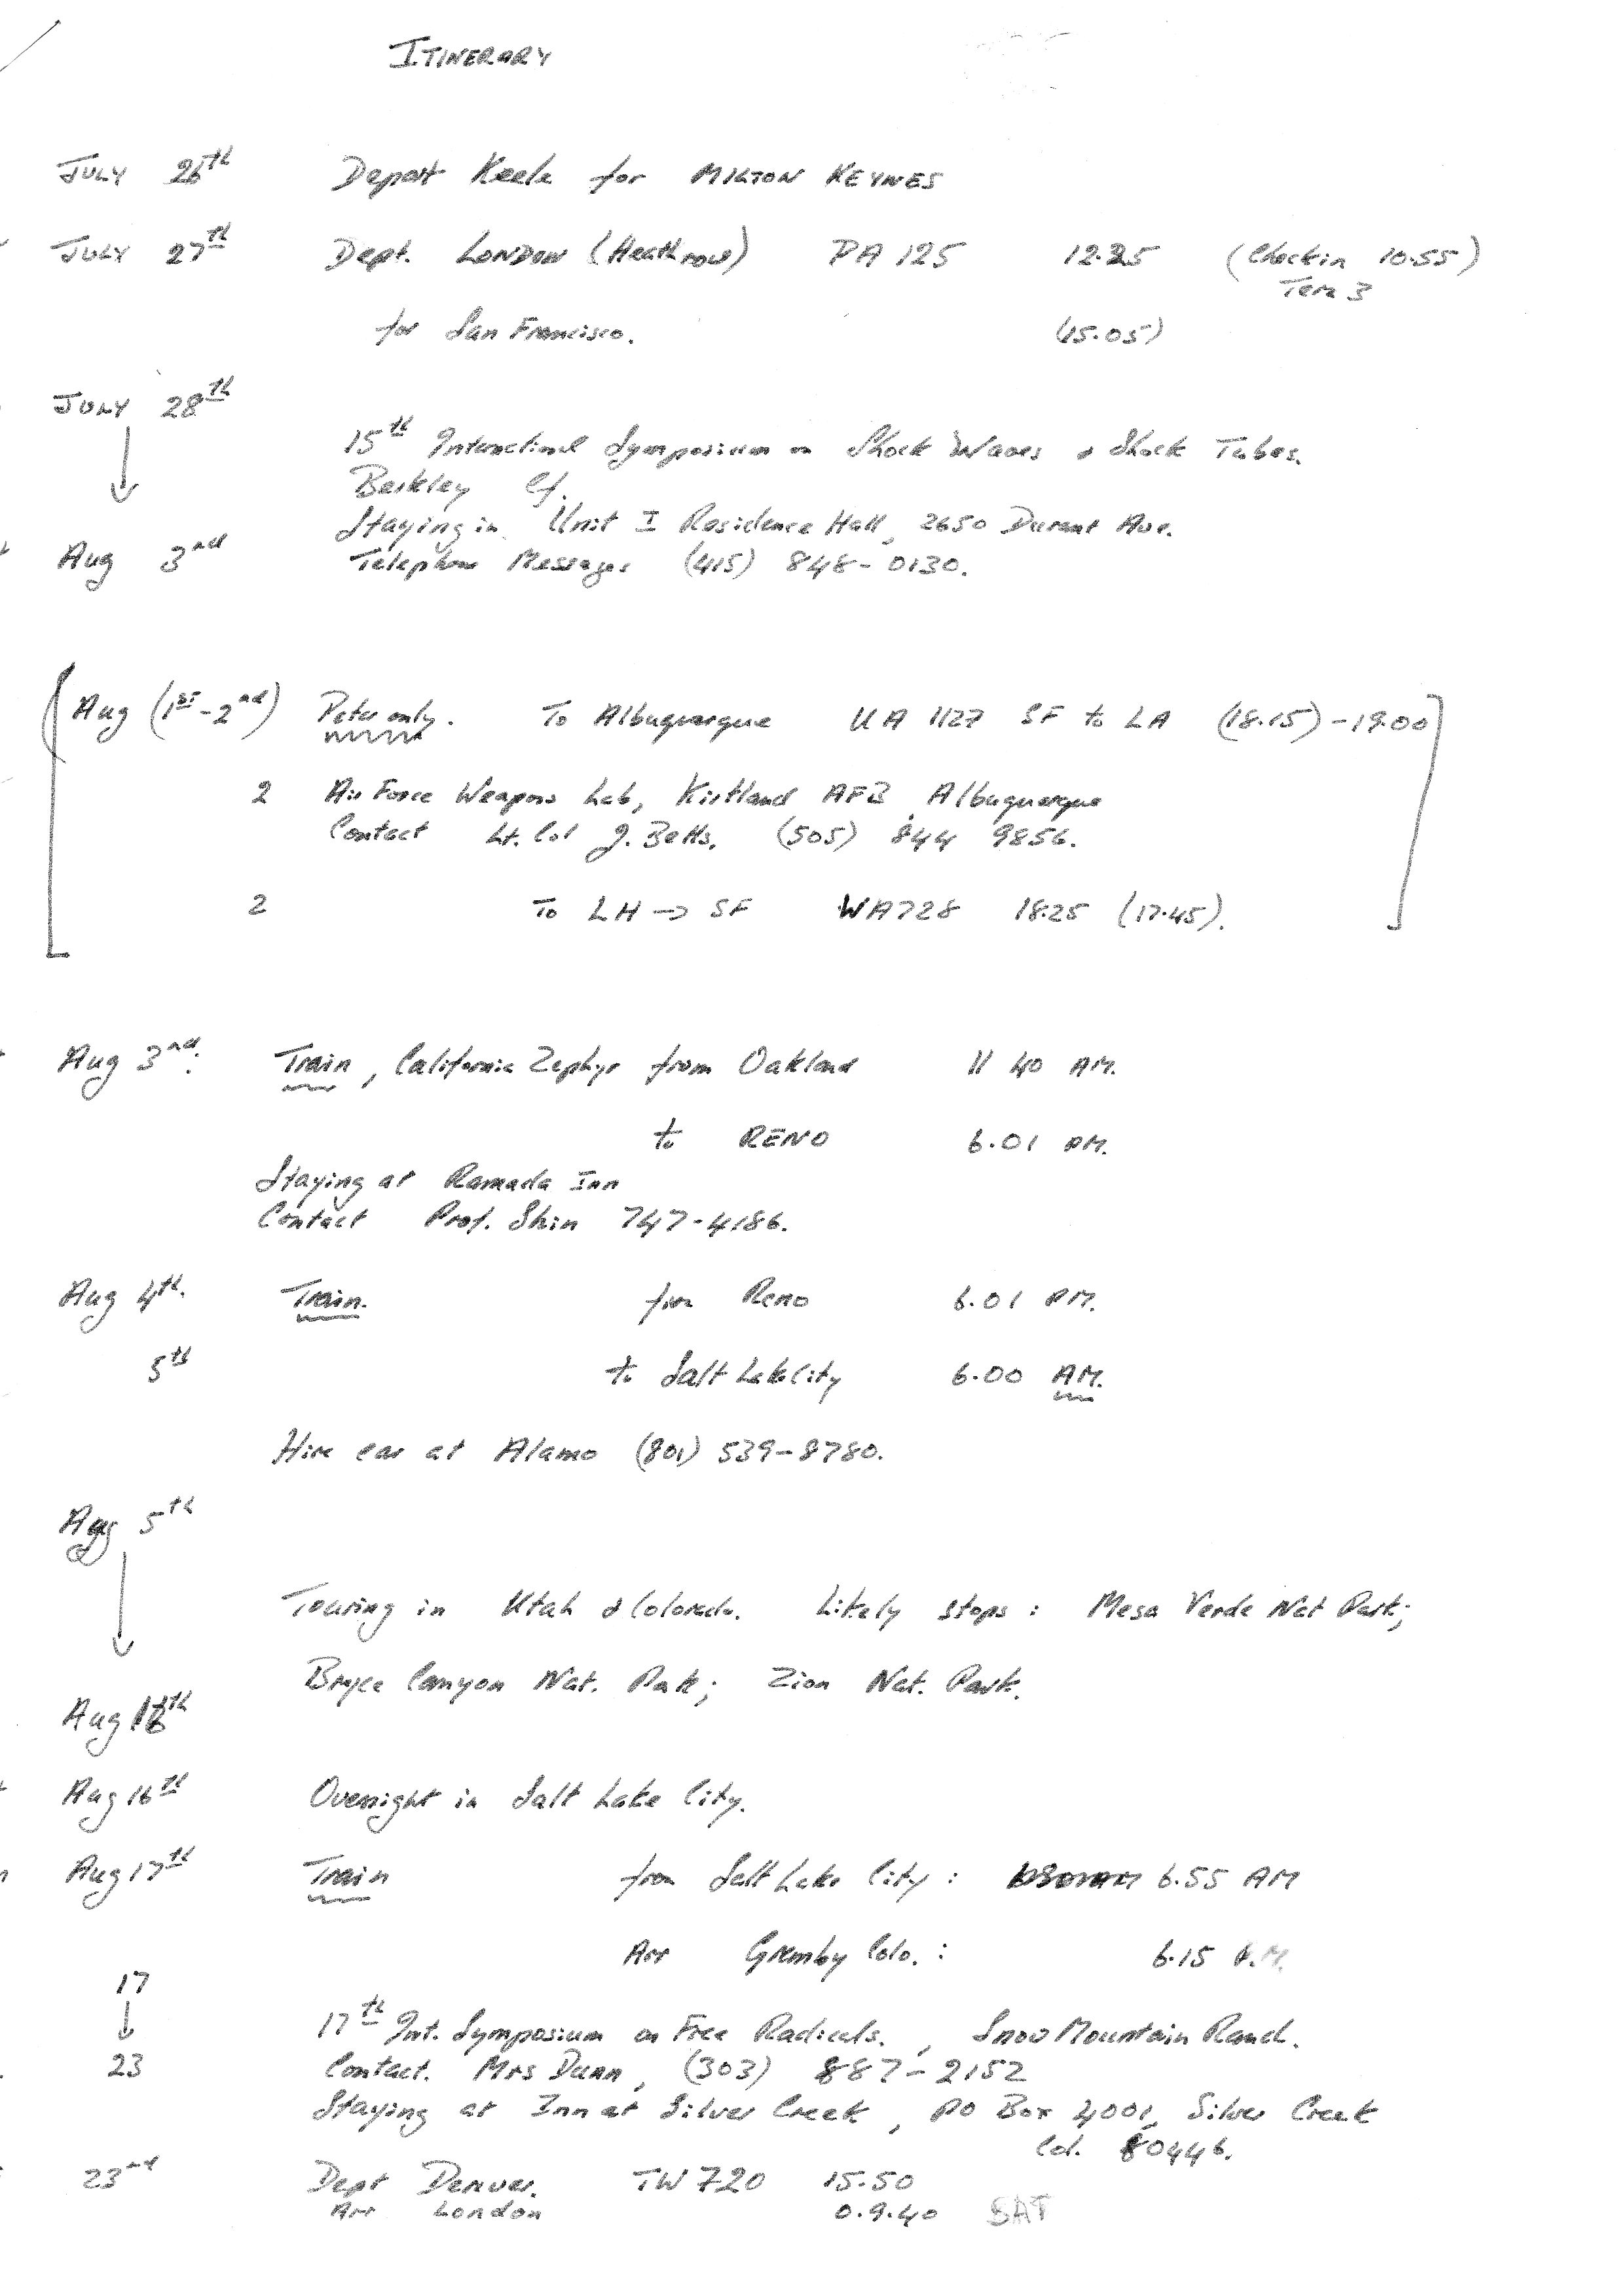 ITINERARY
JULY 26th Depart Keele for MILTON KEYNES
JULY 27th Dept. LONDON (Heathrow) PA 125 12.25 (Checkin 10.55)
Term 3
for San Francisco. (15.05)
JULY 28th
15th International Symposium on Shock Waves & Shock Tubes.
Berkley Cf.
Staying in Unit I Residence Hall, 2650 Durant Ave.
Aug 3rd Telephone Messages (415) 848-0130.
Aug (1st-2nd) Peter only. To Albuquerque UA 1127 SF to LA (18.15)-19.00
2 Air Force Weapons Lab, Kirtland AFB, Albuquerque
Contact Lt. Col J. Betts, (505) 844 9856.
2 To LH → SF WA728 18.25 (17.45).
Aug 3rd. Train, California Zephyr from Oakland 11 40 AM.
to RENO 6.01 PM.
Staying at Ramada Inn
Contact Prof. Shin 747-4186.
Aug 4th. Train. from Reno 6.01 PM.
5th to Salt Lake City 6.00 AM.
Hire car at Alamo (801) 539-8780.
Aug 5th
Touring in Utah & Colorado. Likely stops : Mesa Verde Nat Park;
Bryce Canyon Nat. Park; Zion Nat. Park.
Aug 16th
Aug 16th Overnight in Salt Lake City.
Aug 17th Train from Salt Lake City : 6.55 AM
Arr Gremby Colo. : 6.15 P.M.
17
17th Int. Symposium on Free Radicals., Snow Mountain Ranch.
23 Contact. Mrs Dunn, (303) 887-2152
Staying at Inn at Silver Creek, PO Box 4001, Silver Creek
Col. 80446.
23rd Dept Denver. TW 720 15.50
Arr London 0.9.40 SAT